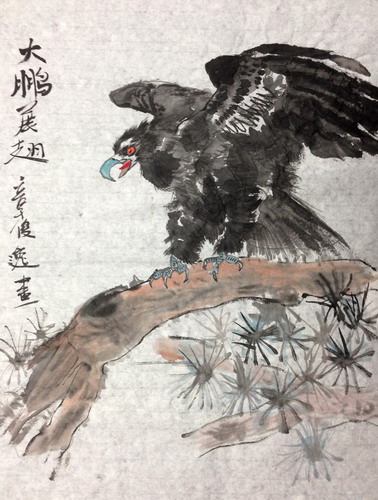 大鹏展翅
章俊逸画